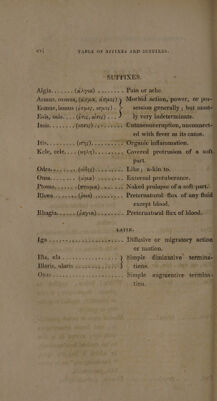 xvi TABLE OF AFFIXES AND SUFFIXES.
SUFFIXES.
Algia . . . . . . (αλγια) . . . . . . . . Pain or ache.
Asmus, osmus, (ασμα, ασμος) } Morbid action, power, or pos-
Esmus, ismus (εσμος, ισμος) . } session generally; but most-
Esis, osis . . . . (εσις, οσις) . . . } ly very indeterminate.
Issis . . . . . . . . . . . . . . . . . . Cutaneous eruption, unconnect-
ed with fever as its cause.
Itis . . . . . . . . (ιτις) . . . . . . . . Organic inflammation.
Kele, cele . . . . (κηλη) . . . . . . . Covered protrusion of a soft
part.
Odes . . . . . . . . . . . . . . . . . Like; a-kin to.
Oma . . . . . . . . (ωμα) . . . . . . . External protuberance.
Ptoma . . . . . . (πτωμα) . . . . . . Naked prolapse of a soft part.
Rhœa . . . . . . . . . . . . . . . . Preternatural flux of any fluid
except blood.
Rhagia . . . . . . . . . . . . . . . Preternatural flux of blood.
LATIN.
Igo . . . . . . . . . . . . . . . . . . Diffusive or migratory action
or motion.
Illa, ola . . . . . . . . . . . . . . . } Simple diminutive termina-
Illaris, olaris . . . . . . . . . . . } tions.
Osus . . . . . . . . . . . . . . . . . Simple augmentive termina-
tion.